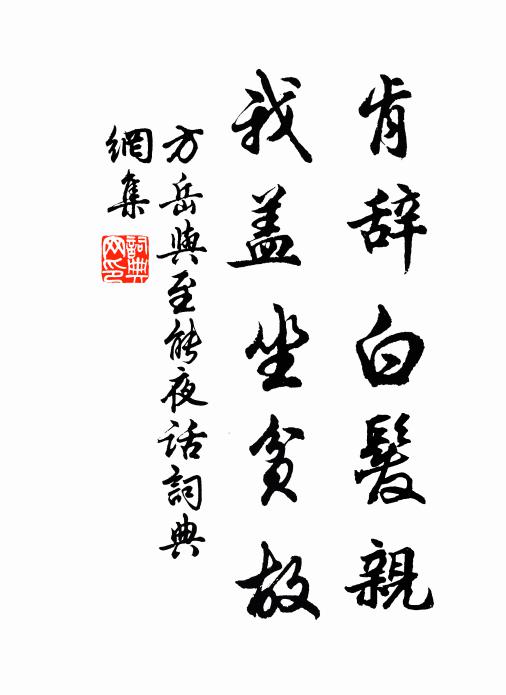 肯辞白髮親
我盖坐貧故
方岳與至能夜话詞典
網集
詞典網印